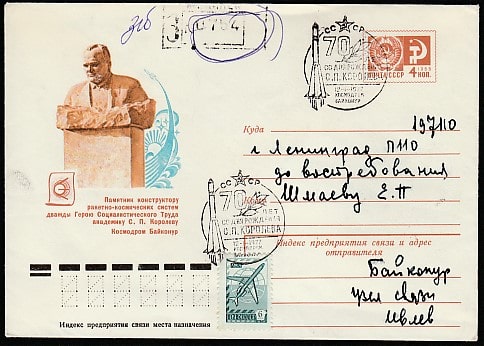 316
З
0784
СС СР
70 ЛЕТ
СО ДНЯ РОЖДЕНИЯ
С.П. КОРОЛЕВА
12-1-1977
КОСМОДРОМ
БАЙКОНУР
ПОЧТА СССР
1966
4 КОП.
Куда
197110
г Ленинград П110
до востребования
Кому
Шмаеву Е.П
Памятник конструктору
ракетно-космических систем
дважды Герою Социалистического Труда
академику С. П. Королеву
Космодром Байконур
СС СР
70 ЛЕТ
СО ДНЯ РОЖДЕНИЯ
С.П. КОРОЛЕВА
Индекс предприятия связи и адрес
отправителя
Байконур
узел связи
Ивлев
6
Индекс предприятия связи места назначения